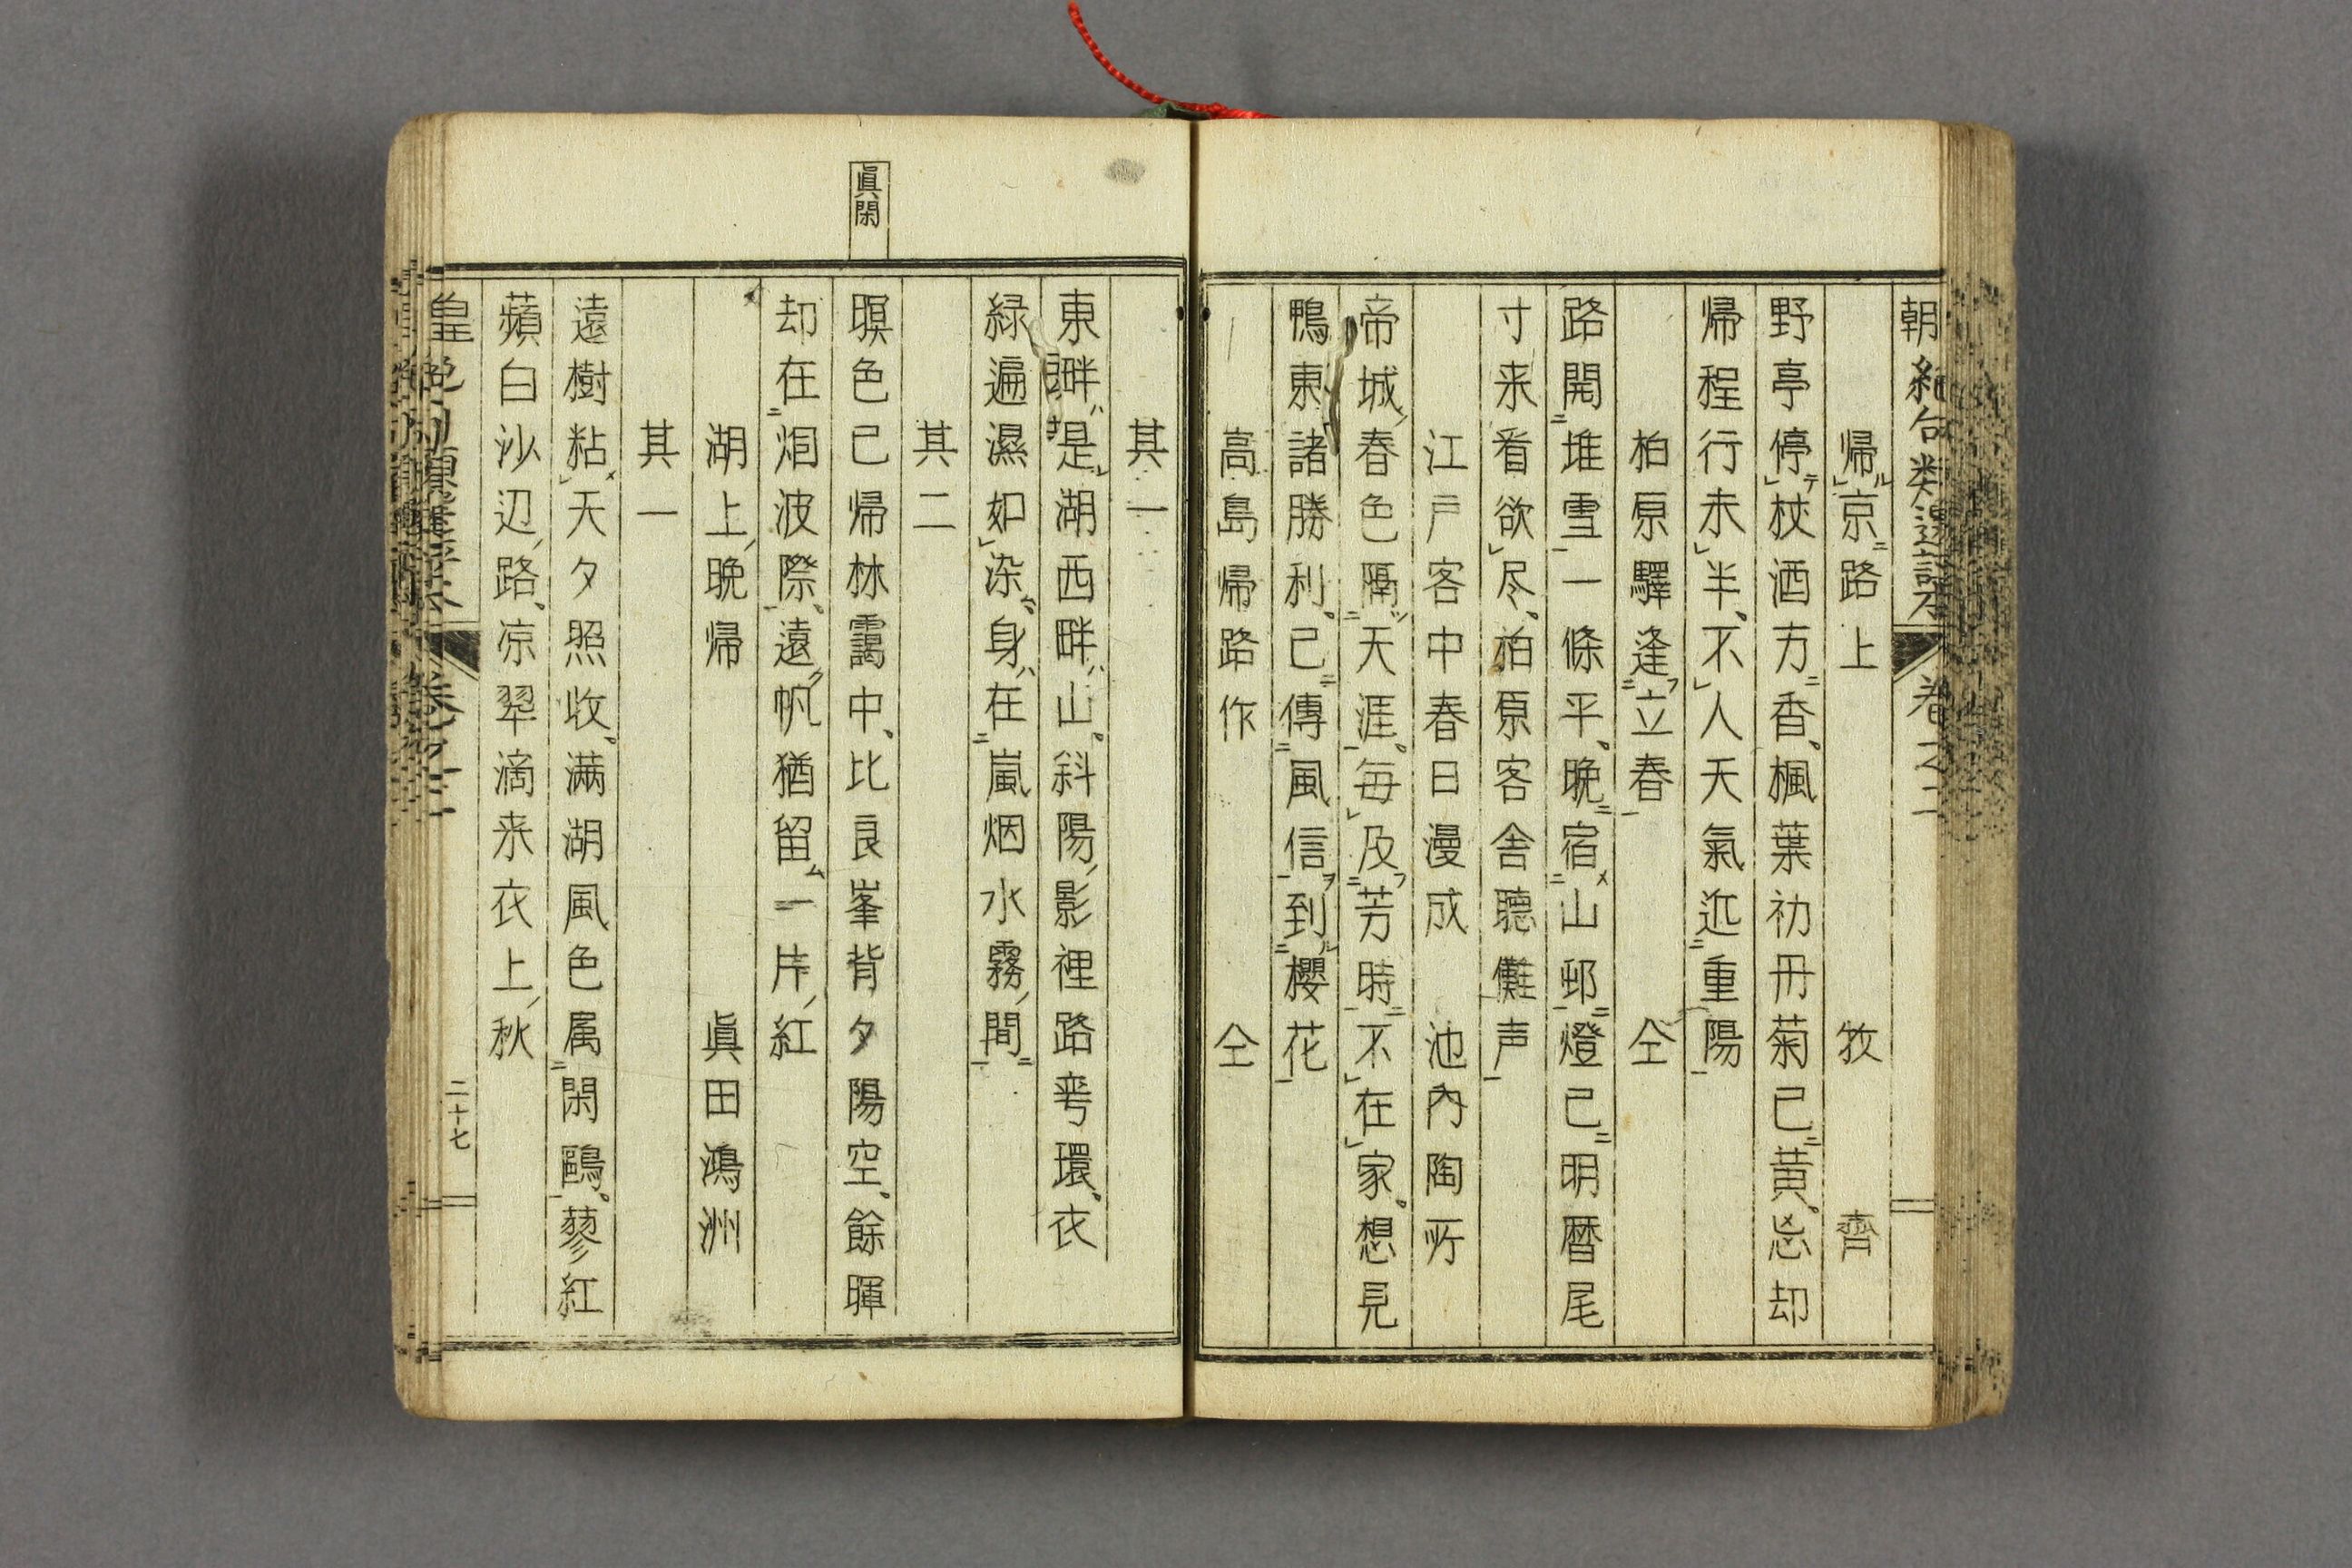 帰京路上 牧齊
野亭停杖酒方香楓葉初丹菊已黄忘却
帰程行未半不人天氣近重陽
柏原驛逢立春 仝
路開堆雪一條平晩宿山邨燈已明暦尾
寸来看欲尽柏原客舎聽儺声
江戸客中春日漫成 池内陶所
帝城春色隔天涯毎及芳時不在家想見
鴨東諸勝利已傳風信到櫻花
高島帰路作 仝
其一
東畔是湖西畔山斜陽影裡路弯環衣
緑遍濕如染身在嵐烟水霧間
其二
暝色已帰林靄中比良峯背夕陽空餘暉
却在烟波際遠帆猶留一片紅
湖上晩帰 眞田鴻洲
其一
眞閑
遠樹粘天夕照收満湖風色属閑鷗蓼紅
蘋白沙辺路凉翠滴来衣上秋
二十七